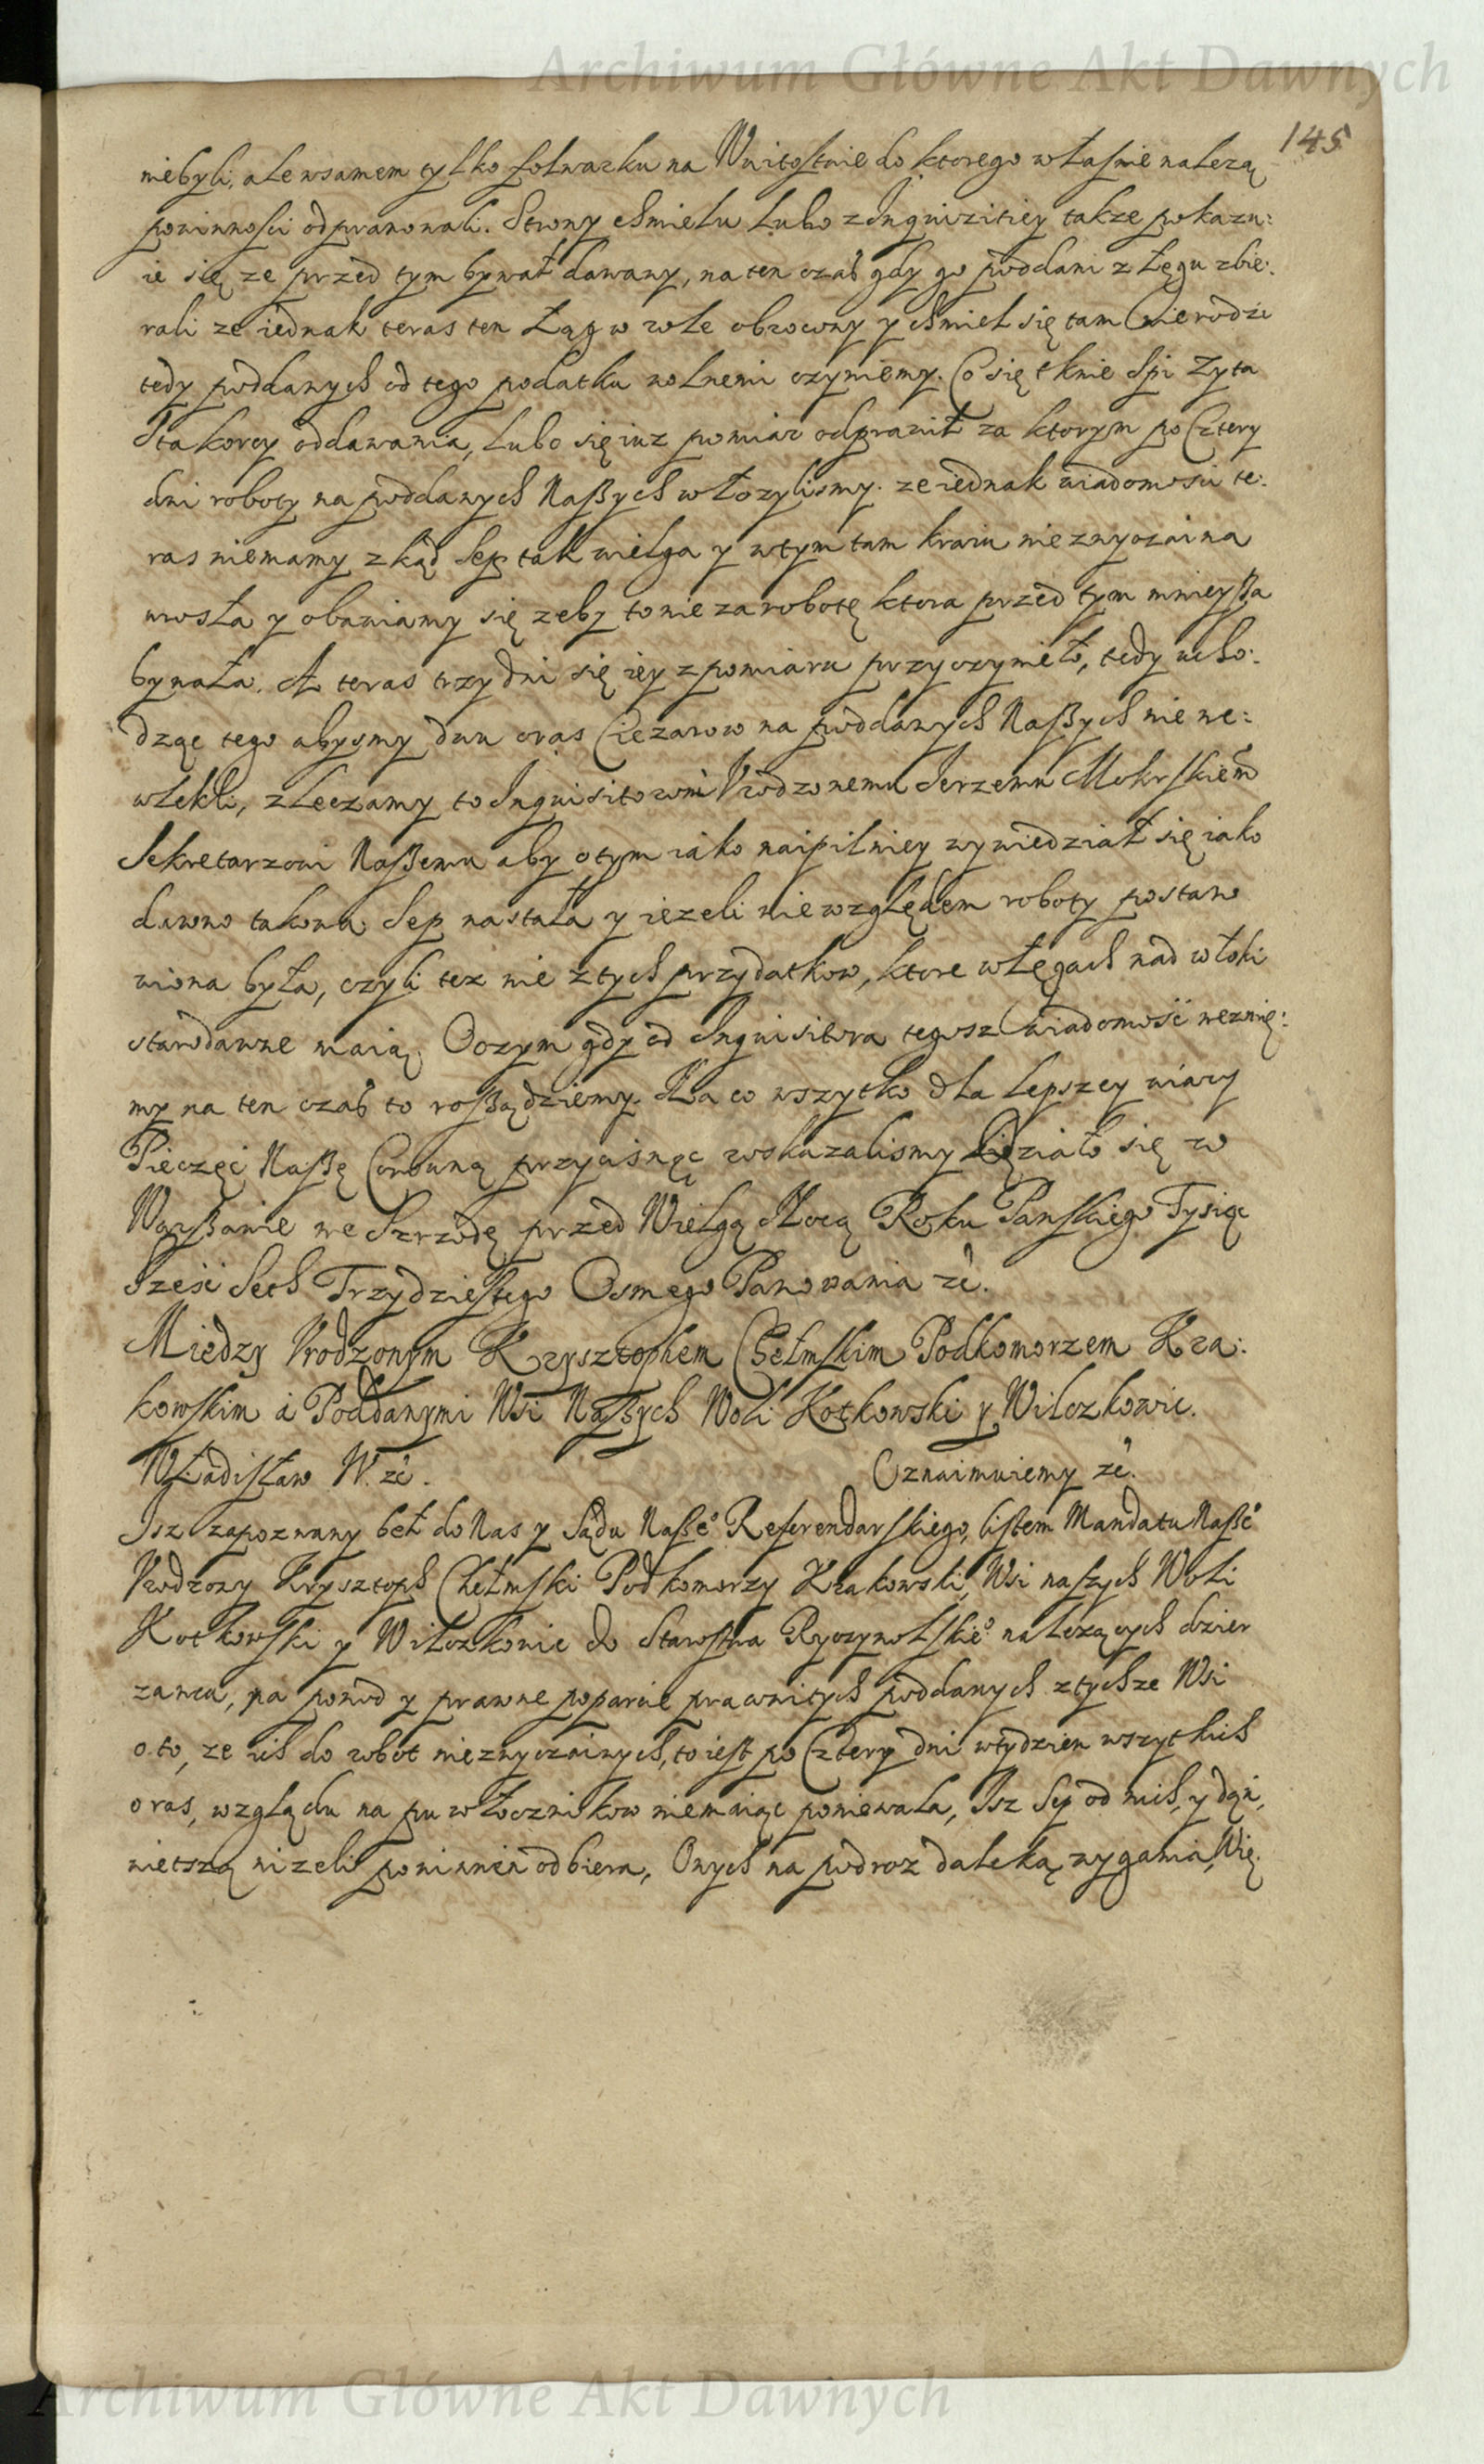 Archiwum Główne Akt Dawnych
145
niebyli, ale wsamem tylko folwarku na Wnitostwie do ktorego własnie nalezą
powinnosci odprawowali. Strony chmielu Lubo z Inquizitiey takze pokazu:
ie się ze przed tym bywał dawany, na ten czas gdy go poddani z Łęgu zbie:
rali ze iednak teras ten Łąg w role obrocony y chmiel się tam nierodzi
tedy poddanych od tego podatku wolnemi czyniemy. Co się tknie Spi Zyta
Sta korcy oddawania, Lubo się iuz pomiar odprawił za ktorym po Cztery
dni roboty na poddanych Naszych włozylismy. ze iednak wiadomosci te:
ras niemamy zkąd Sep tak wielga y wtym tam kraiu niezwyczaina
urosła y obawiamy się zeby to nie za robotę ktora przed tym mnieysza
bywała. A teras trzy dni się iey z pomiaru przyczyniło, tedy ucho:
dząc tego abysmy dwu oras Ciezarow na poddanych Naszych nie we:
wlekli, zleczamy to Inquisitorowi Vrodzonemu Jerzemu Mokrskiem
Sekretarzowi Naszemu aby otym iako naipilniey wywiedział się iako
dawno takowa Sep nastała y iezeli nie względem roboty postano
wiona była, czyli tez nie ztych przydatkow, ktore wŁęgach nad włoki
starodawne maią Oczym gdy od Inquisitora tegosz Wiadomość wezmię:
my na ten czas to rosządziemy. Na co wszytko dla Lepszey wiary
Pieczęć Naszę Coronną przycisnąć roskazalismy Działo się w
Warszawie we Szrzodę przed Wielgą Nocą Roku Panskiego Tysiąc
Sześć Seth Trzydziestego Osmego Panowania zc.
Miedzy Vrodzonym Krzysztophem Chełmskim Podkomorzem Kra:
kowskim a Poddanymi Wsi Naszych Woli Kotkowski y Wilczkowic.
Władisław IV. zc. Oznaimuiemy zc.
Isz zapozwany beł do Nas y Sądu Nasze° Referendarskiego, listem Mandatu Nasze°
Vrodzony Krysztoph Chełmski Podkomorzy Krakowski, Wsi naszych Woli
Kotkowski y Wilczkowic do Starostwa Ryczywolskie° nalezących dzier
zawca, na powod y prawne poparcie pracowitych poddanych ztychze Wsi
o to, ze ich do robot niezwyczainych, to iest po Cztery dni wtydzien wszytkich
oras, względu na puwłocznikow niemaiąc poniewala, Isz Sep od nich, y dan,
nietszą nizeli powinien odbiera, Onych na podroz daleką wygania, Wię
Archiwum Główne Akt Dawnych